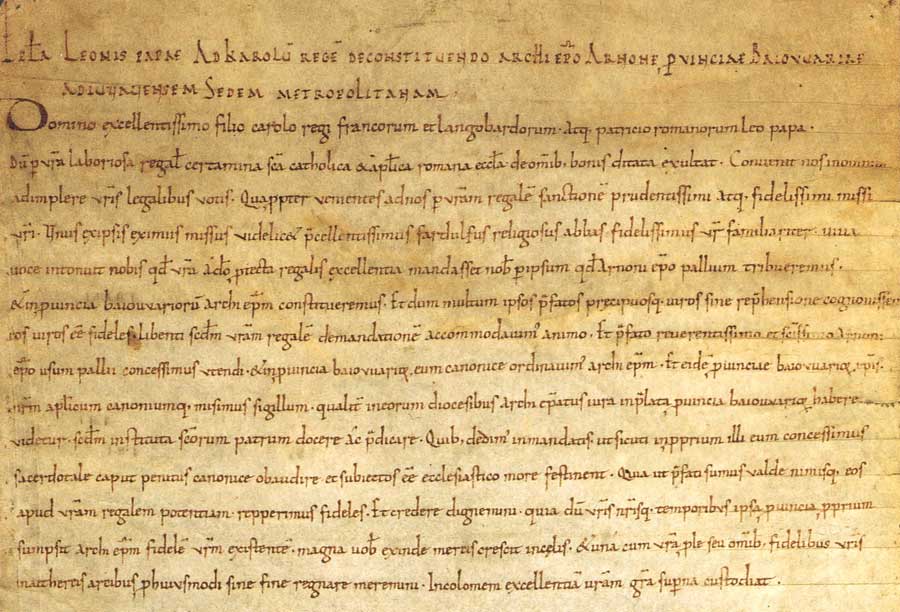 Epła Leonis papae Ad Karolū regē de constituendo archi epō Arnone, ꝑvinciae Baiouuariae
ad iuuauensem Sedem metropolitanam.
Domino excellentissimo filio carolo regi francorum et langobardorum · Atq; patricio romanorum leo papa ·
Dū ꝑ vr̄a laboriosa regał certamina sc̄a catholica & ap̄lica romana ecclā de omīb; bonis ditata exultat · Convenit nos in omnibus
adimplere vr̄is legalibus votis · Quaꝓpter venientes ad nos ꝑ vr̄am regalē sanctionē prudentissimi atq; fidelissimi missi
vr̄i · Unus ex ipsis eximius missus videlic& p̄cellentissimus fardulfus religiosus abbas fidelissimus vr̄ familiariter · viva
voce intonuit nobis qđ vr̄a a dō ꝓtecta regalis excellentia mandasset nob̄ ꝑ ipsum qđ Arnoni epō pallium tribueremus ·
& in ꝓvincia baiouuariorū archi epm̄ constitueremus · Et dum multum ipsos p̄fatos precipuosq; viros sine rep̄hensione cognovissem
eos viros eē fideles · libenti scdm̄ vr̄am regalē demandationē accommodavim' animo · Et p̄fato reverentissimo et scissimo Arnoni
epō usum pallii concessimus utendi · & in ꝓvincia baiouuarioꝝ eum canonice ordinavim' archi epm̄ · Et eidē ꝓvinciae baiouuarioꝝ epis
nr̄m ap̄licum canonicumq; misimus sigillum · qualit̄ in eorum diocesibus archi ep̄atus iura in p̄lata ꝓvincia baiouuarioꝝ habere
videtur · scdm̄ instituta sc̄orum patrum docere ac p̄dicare · Quib; dedim' in mandatis · ut sicuti in ꝓprium illi eum concessimus
sacerdotale caput penitus canonice obaudire et subiectos eē ecclesiastico more festinent · Quia ut p̄fati sumus valde nimisq; eos
apud vr̄am regalem potentiam · repperimus fideles · Et credere dignemini · quia dū vr̄is nr̄isq; temporibus ipsa ꝓvincia ꝓprium
sumpsit archi epm̄ fidelē vr̄m existentē · magna vob̄ exinde mercis crescit in celis · & una cum vr̄a ple seu omīb; fidelibus vr̄is
in aethereis arcibus ꝓ huiusmodi sine fine regnare meremini · Incolomem excellentiā vr̄am gr̄a supna custodiat ·